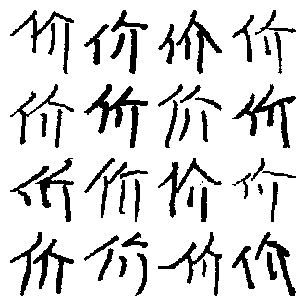 价价价价
价价价价
价价价价
价价价价